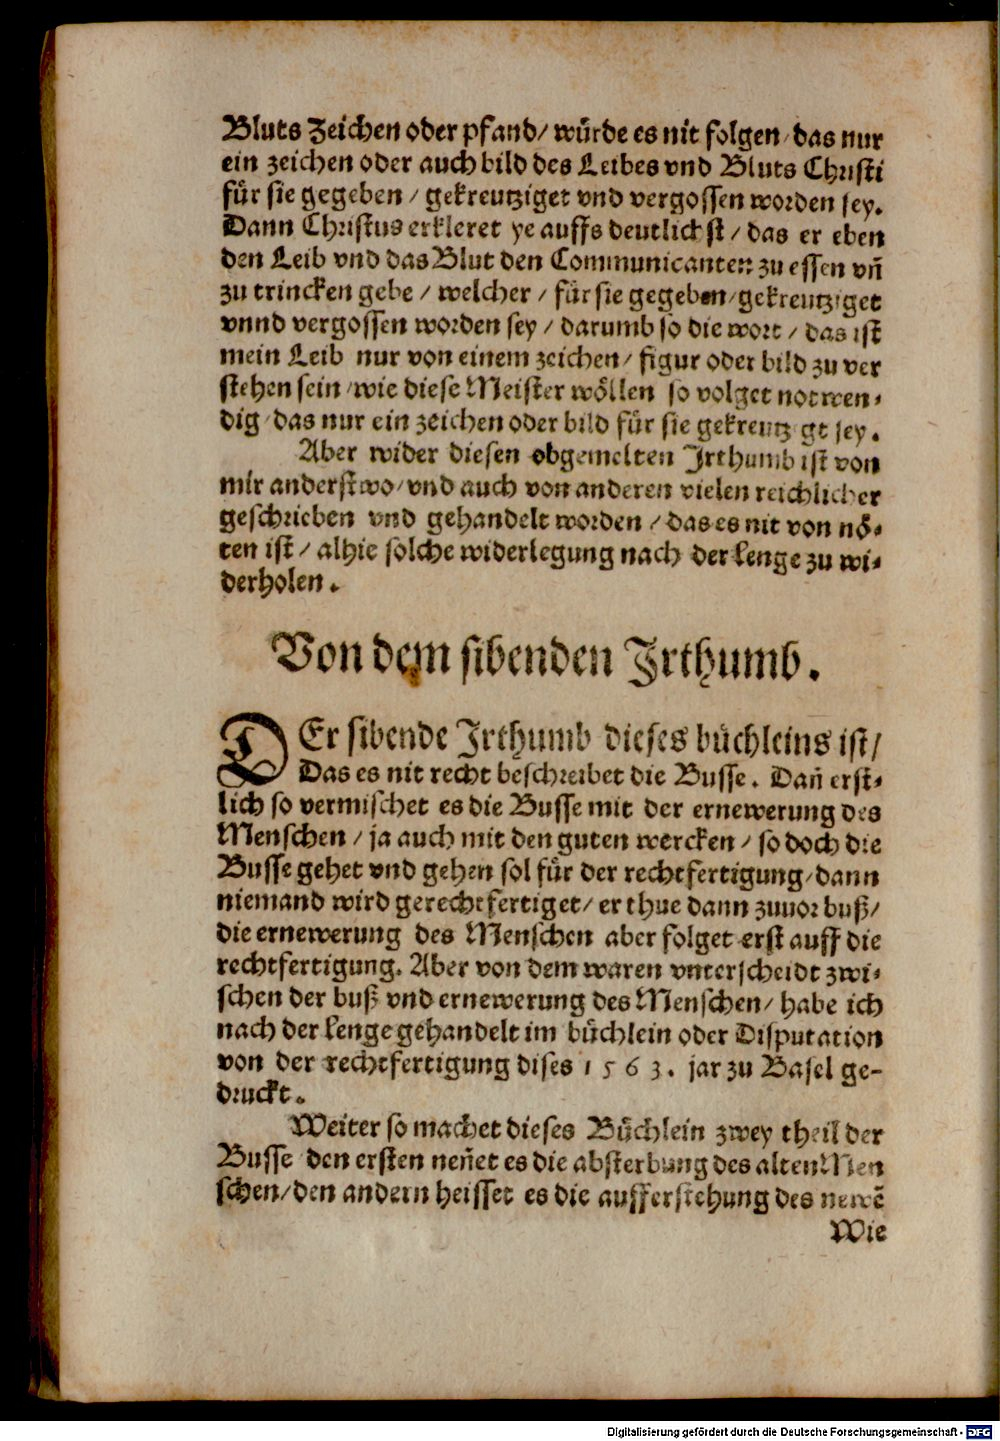 Bluts Zeichen oder pfand/ würde es nit folgen/ das nur
ein zeichen oder auch bild des Leibes vnd Bluts Christi
für sie gegeben / gekreutziget vnd vergossen worden sey.
Dann Christus erkleret ye auffs deutlichst / das er eben
den Leib vnd das Blut den Communicanten zu essen vñ
zu trincken gebe / welcher / für sie gegeben/gekreutziget
vnnd vergossen worden sey / darumb so die wort / das ist
mein Leib nur von einem zeichen/ figur oder bild zu ver
stehen sein/wie diese Meister wöllen so volget notwen-
dig/das nur ein zeichen oder bild für sie gekreutzigt sey.
Aber wider diesen obgemelten Irthumb ist von
mir anderstwo/vnd auch von anderen vielen reichlicher
geschrieben vnd gehandelt worden / das es nit von nö-
ten ist / alhie solche widerlegung nach der lenge zu wi-
derholen.
Von dem sibenden Irthumb.
DEr sibende Irthumb dieses büchleins ist/
Das es nit recht beschreibet die Busse. Dañ erst-
lich so vermischet es die Busse mit der ernewerung des
Menschen / ja auch mit den guten wercken / so doch die
Busse gehet vnd gehen sol für der rechtfertigung/dann
niemand wird gerechtfertiget/ er thue dann zuuor buß/
die ernewerung des Menschen aber folget erst auff die
rechtfertigung. Aber von dem waren vnterscheidt zwi-
schen der buß vnd ernewerung des Menschen/ habe ich
nach der lenge gehandelt im büchlein oder Disputation
von der rechtfertigung dises 1563. jar zu Basel ge-
druckt.
Weiter so machet dieses Büchlein zwey theil der
Busse den ersten neñet es die absterbung des alten Men
schen/den andern heisset es die aufferstehung des newē
Wie
Digitalisierung gefördert durch die Deutsche Forschungsgemeinschaft - DFG